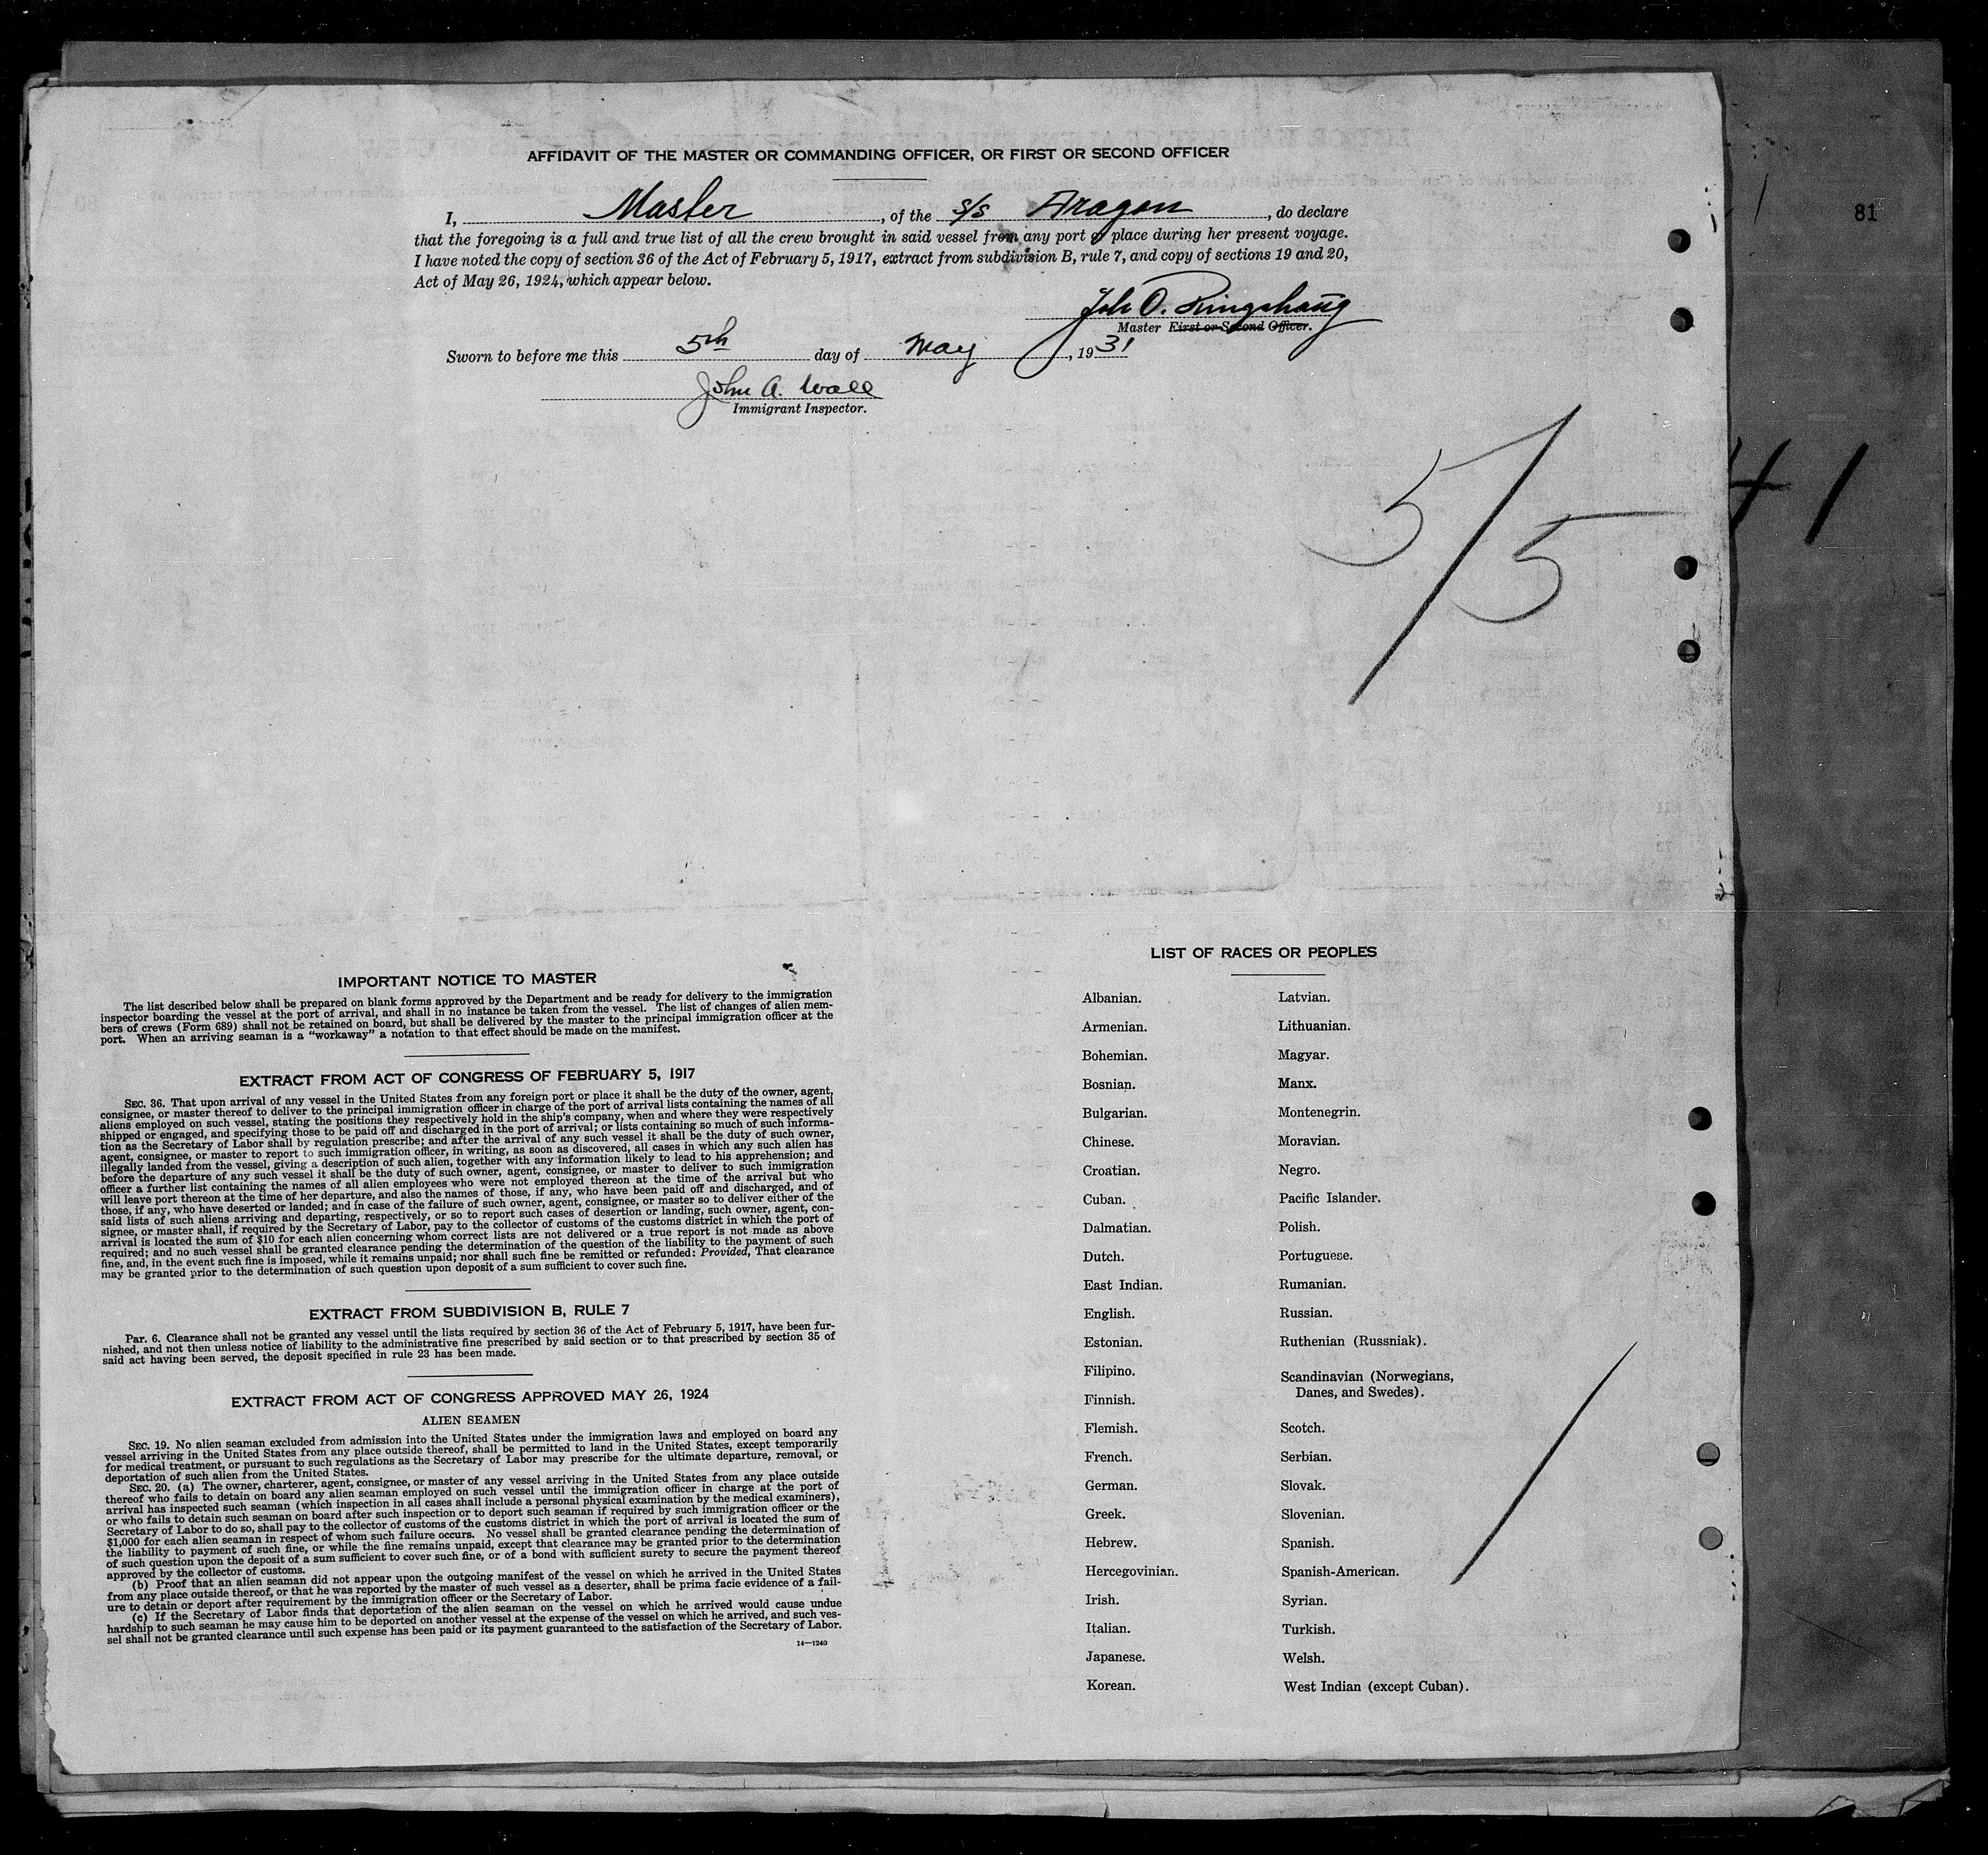 AFFIDAVIT OF THE MASTER OR COMMANDING OFFICER, OR FIRST OR SECOND OFFICER
I, Master, of the S/S Aragon, do declare
that the foregoing is a full and true list of all the crew brought in said vessel from any port or place during her present voyage.
I have noted the copy of section 36 of the Act of February 5, 1917, extract from subdivision B, rule 7, and copy of sections 19 and 20,
Act of May 26, 1924, which appear below.
Joh O.
Master First or Second Officer.
Sworn to before me this 5th day of May, 1931
John A. Wall
Immigrant Inspector.
81
5/5
41
IMPORTANT NOTICE TO MASTER
The list described below shall be prepared on blank forms approved by the Department and be ready for delivery to the immigration
inspector boarding the vessel at the port of arrival, and shall in no instance be taken from the vessel. The list of changes of alien mem-
bers of crews (Form 689) shall not be retained on board, but shall be delivered by the master to the principal immigration officer at the
port. When an arriving seaman is a "workaway" a notation to that effect should be made on the manifest.
EXTRACT FROM ACT OF CONGRESS OF FEBRUARY 5, 1917
SEC. 36. That upon arrival of any vessel in the United States from any foreign port or place it shall be the duty of the owner, agent,
consignee, or master thereof to deliver to the principal immigration officer in charge of the port of arrival lists containing the names of all
aliens employed on such vessel, stating the positions they respectively hold in the ship's company, when and where they were respectively
shipped or engaged, and specifying those to be paid off and discharged in the port of arrival; or lists containing so much of such informa-
tion as the Secretary of Labor shall by regulation prescribe; and after the arrival of any such vessel it shall be the duty of such owner,
agent, consignee, or master to report to such immigration officer, in writing, as soon as discovered, all cases in which any such alien has
illegally landed from the vessel, giving a description of such alien, together with any information likely to lead to his apprehension; and
before the departure of any such vessel it shall be the duty of such owner, agent, consignee, or master to deliver to such immigration
officer a further list containing the names of all alien employees who were not employed thereon at the time of the arrival but who
will leave port thereon at the time of her departure, and also the names of those, if any, who have been paid off and discharged, and of
those, if any, who have deserted or landed; and in case of the failure of such owner, agent, consignee, or master so to deliver either of the
said lists of such aliens arriving and departing, respectively, or so to report such cases of desertion or landing, such owner, agent, con-
signee, or master shall, if required by the Secretary of Labor, pay to the collector of customs of the customs district in which the port of
arrival is located the sum of $10 for each alien concerning whom correct lists are not delivered or a true report is not made as above
required; and no such vessel shall be granted clearance pending the determination of the question of the liability to the payment of such
fine, and, in the event such fine is imposed, while it remains unpaid; nor shall such fine be remitted or refunded: Provided, That clearance
may be granted prior to the determination of such question upon deposit of a sum sufficient to cover such fine.
EXTRACT FROM SUBDIVISION B, RULE 7
Par. 6. Clearance shall not be granted any vessel until the lists required by section 36 of the Act of February 5, 1917, have been fur-
nished, and not then unless notice of liability to the administrative fine prescribed by said section or to that prescribed by section 35 of
said act having been served, the deposit specified in rule 23 has been made.
EXTRACT FROM ACT OF CONGRESS APPROVED MAY 26, 1924
ALIEN SEAMEN
SEC. 19. No alien seaman excluded from admission into the United States under the immigration laws and employed on board any
vessel arriving in the United States from any place outside thereof, shall be permitted to land in the United States, except temporarily
for medical treatment, or pursuant to such regulations as the Secretary of Labor may prescribe for the ultimate departure, removal, or
deportation of such alien from the United States.
SEC. 20. (a) The owner, charterer, agent, consignee, or master of any vessel arriving in the United States from any place outside
thereof who fails to detain on board any alien seaman employed on such vessel until the immigration officer in charge at the port of
arrival has inspected such seaman (which inspection in all cases shall include a personal physical examination by the medical examiners),
or who fails to detain such seaman on board after such inspection or to deport such seaman if required by such immigration officer or the
Secretary of Labor to do so, shall pay to the collector of customs of the customs district in which the port of arrival is located the sum of
$1,000 for each alien seaman in respect of whom such failure occurs. No vessel shall be granted clearance pending the determination of
the liability to payment of such fine, or while the fine remains unpaid, except that clearance may be granted prior to the determination
of such question upon the deposit of a sum sufficient to cover such fine, or of a bond with sufficient surety to secure the payment thereof
approved by the collector of customs.
(b) Proof that an alien seaman did not appear upon the outgoing manifest of the vessel on which he arrived in the United States
from any place outside thereof, or that he was reported by the master of such vessel as a deserter, shall be prima facie evidence of a fail-
ure to detain or deport after requirement by the immigration officer or the Secretary of Labor.
(c) If the Secretary of Labor finds that deportation of the alien seaman on the vessel on which he arrived would cause undue
hardship to such seaman he may cause him to be deported on another vessel at the expense of the vessel on which he arrived, and such ves-
sel shall not be granted clearance until such expense has been paid or its payment guaranteed to the satisfaction of the Secretary of Labor.
14—1240
LIST OF RACES OR PEOPLES
Albanian.
Armenian.
Bohemian.
Bosnian.
Bulgarian.
Chinese.
Croatian.
Cuban.
Dalmatian.
Dutch.
East Indian.
English.
Estonian.
Filipino.
Finnish.
Flemish.
French.
German.
Greek.
Hebrew.
Hercegovinian.
Irish.
Italian.
Japanese.
Korean.
Latvian.
Lithuanian.
Magyar.
Manx.
Montenegrin.
Moravian.
Negro.
Pacific Islander.
Polish.
Portuguese.
Rumanian.
Russian.
Ruthenian (Russniak).
Scandinavian (Norwegians,
Danes, and Swedes).
Scotch.
Serbian.
Slovak.
Slovenian.
Spanish.
Spanish-American.
Syrian.
Turkish.
Welsh.
West Indian (except Cuban).